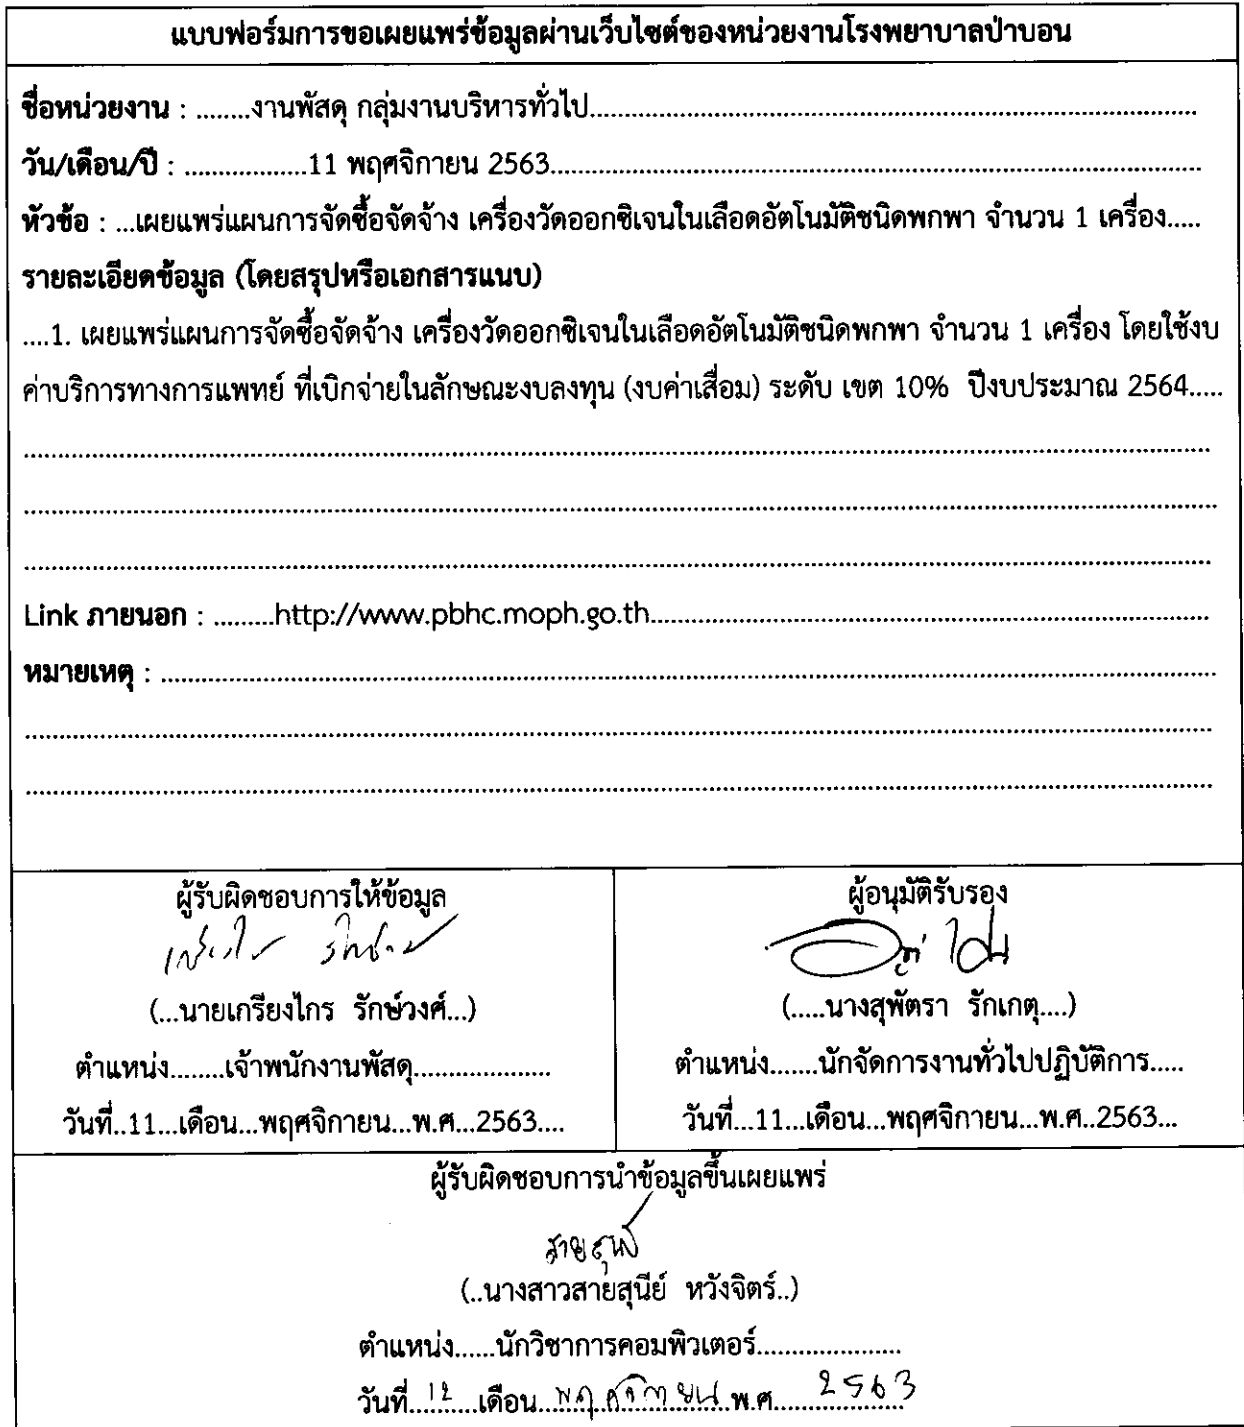 แบบฟอร์มการขอเผยแพร่ข้อมูลผ่านเว็บไซต์ของหน่วยงานโรงพยาบาลป่าบอน
ชื่อหน่วยงาน : ........งานพัสดุ กลุ่มงานบริหารทั่วไป........
วัน/เดือน/ปี : ..................11 พฤศจิกายน 2563........
หัวข้อ : ...เผยแพร่แผนการจัดซื้อจัดจ้าง เครื่องวัดออกซิเจนในเลือดอัตโนมัติชนิดพกพา จำนวน 1 เครื่อง.....
รายละเอียดข้อมูล (โดยสรุปหรือเอกสารแนบ)
....1. เผยแพร่แผนการจัดซื้อจัดจ้าง เครื่องวัดออกซิเจนในเลือดอัตโนมัติชนิดพกพา จำนวน 1 เครื่อง โดยใช้งบ
ค่าบริการทางการแพทย์ ที่เบิกจ่ายในลักษณะงบลงทุน (งบค่าเสื่อม) ระดับ เขต 10% ปีงบประมาณ 2564.....
Link ภายนอก : .........http://www.pbhc.moph.go.th........
หมายเหตุ : ........
ผู้รับผิดชอบการให้ข้อมูล
(...นายเกรียงไกร รักษ์วงศ์...)
ตำแหน่ง........เจ้าพนักงานพัสดุ....................
วันที่..11...เดือน...พฤศจิกายน...พ.ศ...2563....
ผู้อนุมัติรับรอง
(.....นางสุพัตรา รักเกตุ....)
ตำแหน่ง.......นักจัดการงานทั่วไปปฏิบัติการ.....
วันที่...11...เดือน...พฤศจิกายน...พ.ศ..2563...
ผู้รับผิดชอบการนำข้อมูลขึ้นเผยแพร่
สายสุนีย์
(..นางสาวสายสุนีย์ หวังจิตร์..)
ตำแหน่ง......นักวิชาการคอมพิวเตอร์.....................
วันที่...12...เดือน...พฤศจิกายน...พ.ศ....2563